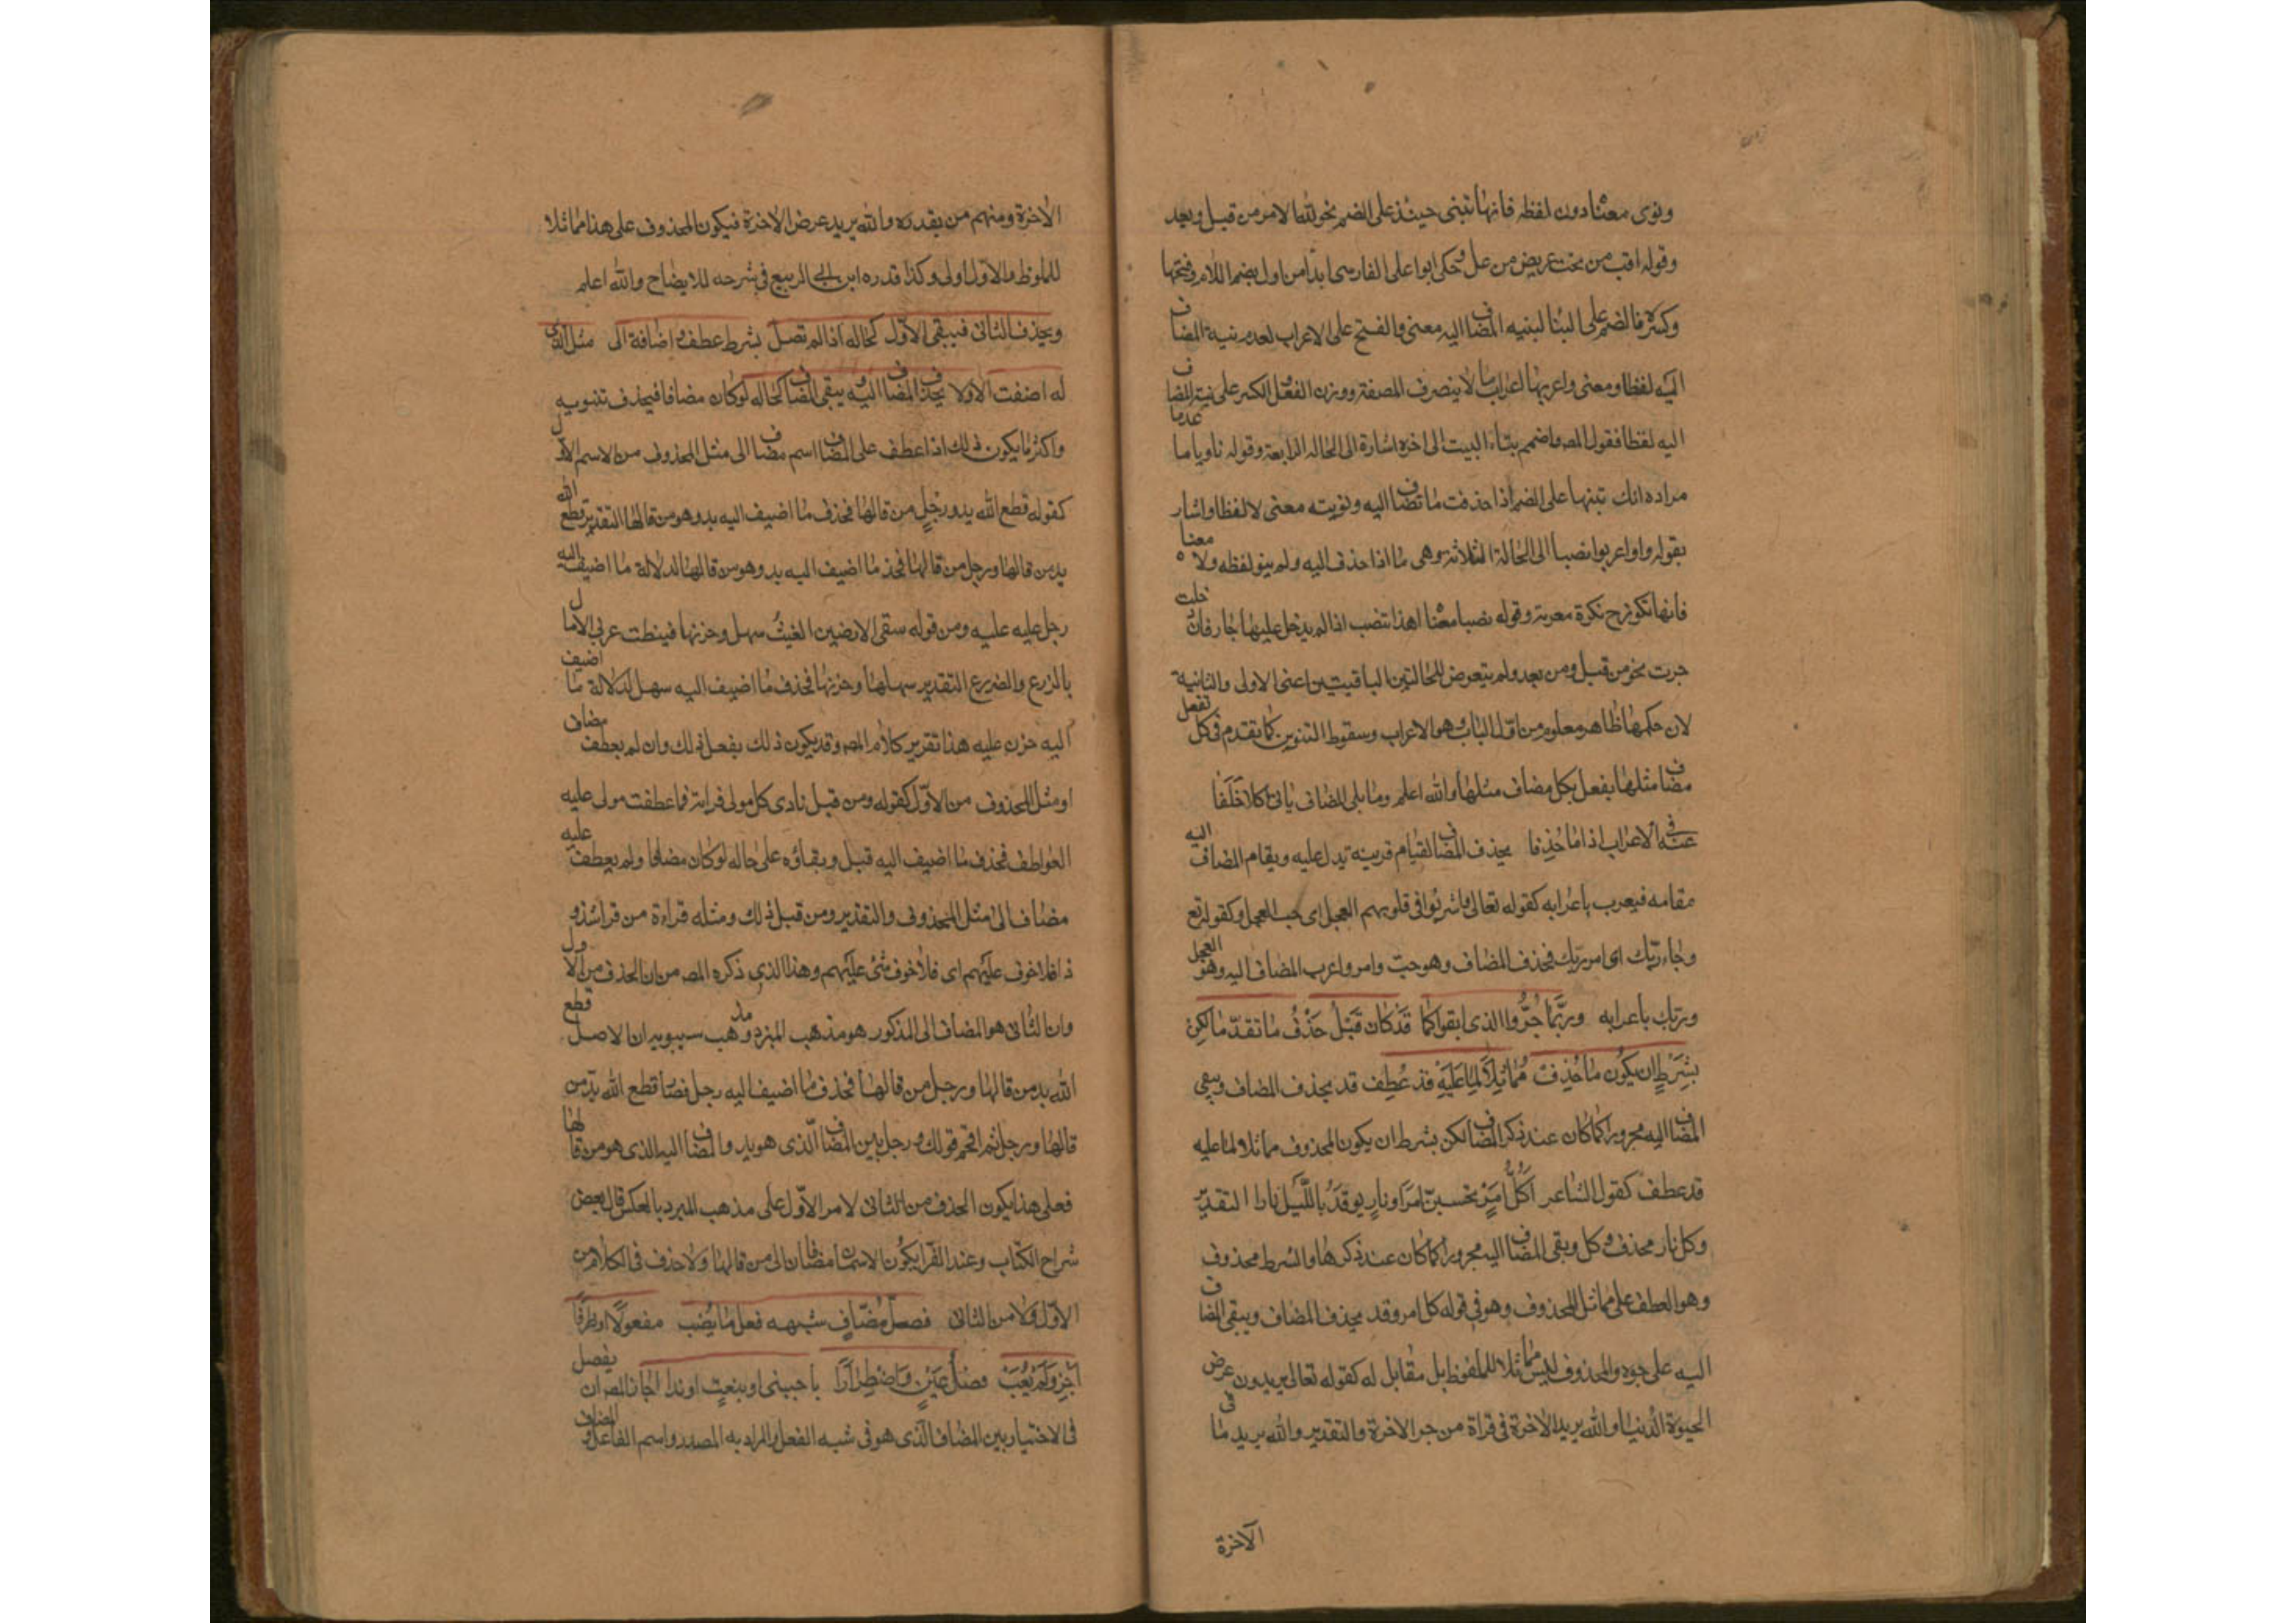 ونوى معناه دون لفظه فانها تبنى حينئذ على الضم نحو لله الامر من قبل وبعد
وقوله اقب من تحت عريض من عل وحكى ابوا على الفارسى ابدا من اول بضم اللام وفتحها
وكسرها فالضم على البنا لبنيه المضاف اليه معنى والفتح على الاعراب لعدم نية المضاف
اليه لفظا ومعنى واعربها اعراب ما لا ينصرف للصفة ووزن الفعل والكسر على نية المضاف
اليه لفظا فقول المص واضمم بناء البيت الى اخره اشارة الى الحالة الرابعة وقوله ناويا ما عدما
مراده انك تبنها على الضم اذا حذفت ما تضاف اليه ونويته معنى لا لفظا واشار
بقوله واعربوا نصبا الى الحالة الثلاثة وهى ما اذا حذف اليه ولم ينو لفظه ولا معناه
فانها تكون ح نكرة معربة وقوله نصبا معناه اهذا تنصب اذا لم يدخل عليها جار فان دخلت
جرت نحو من قبل ومن بعد ولم يتعرض للحالتين الباقيتين اعنى الاولى والثانية
لان حكمها ظاهر معلوم من اول الباب وهو الاعراب وسقوط التنوين كما تقدم فى كل تفعل
مضاف مثلها بفعل بكل مضاف مثلها والله اعلم وما يلى المضاف ياتى كلا خلفا
عنه فى الاعراب اذا ما حذفا يحذف المضاف لقيام قرينه تدل عليه ويقام المضاف اليه
مقامه فيعرب باعرابه كقوله تعالى واشربوا فى قلوبهم العجل اى حب العجل وكقوله تع
وجاء ربك اى امر ربك فحذف المضاف وهو حب وامر واعرب المضاف اليه وهو العجل
وربك باعرابه وربما جروا الذى ابقوا كما قد كان قبل حذف ما تقدما لكن
بشرط ان يكون ما حذف مماثلا لما عليه قد عطف قد يحذف المضاف ويبقى
المضاف اليه مجرورا كما كان عند ذكر المضاف لكن بشرط ان يكون المحذوف مماثلا لما عليه
قد عطف كقول الشاعر اكل امرئ تحسبين امرا ونار يوقد بالليل نارا التقدير
وكل نار فحذف كل وبقى المضاف اليه مجرورا كما كان عند ذكرها والشرط محذوف
وهو العطف على مماثل المحذوف وهو فى قوله كل امر وقد يحذف المضاف ويبقى المضاف
اليه على جره والمحذوف ليس مماثلا للملفوظ بل مقابل له كقوله تعالى يريدون عرض
الحيوة الدنيا والله يريد الاخرة فى قراة من جر الاخرة والتقدير والله يريد ما فى
الآخرة
الاخرة ومنهم من يقدره والله يريد عرض الاخرة فيكون المحذوف على هذا مماثلا
للملوظ والاول اولى وكذا قدره ابن ابى الربيع فى شرحه للايضاح والله اعلم
ويحذف الثانى فيبقى الاول كحاله اذا لم تصل بشرط عطف واضافة الى مثل الذى
له اضفت الاولا يحذف المضاف اليه ويبقى المضاف كحاله لو كان مضافا فيحذف تنوينه
واكثر ما يكون ذلك اذا عطف على المضاف اسم مضاف الى مثل المحذوف من الاسم الاول
كقوله قطع الله يد ورجل من قالها فحذف ما اضيف اليه يد وهو من قالها التقدير قطع الله
يد من قالها ورجل من قالها فحذف ما اضيف اليه يد وهو من قالها لدلالة ما اضيف اليه
رجل عليه عليه ومن قوله سقى الارضين الغيث سهل وحزنها فينطت عرى الامال
بالزرع والضرع التقدير سهلها وحزنها فحذف ما اضيف اليه سهل لدلالة ما اضيف
اليه حزن عليه هذا تقرير كلام المص وقد يكون ذلك بفعل ذلك وان لم يعطف مضاف
او مثل المحذوف من الاول كقوله ومن قبل نادى كل مولى قرابة فما عطفت مولى عليه
العواطف فحذف ما اضيف اليه قبل وبقاؤه على حاله لو كان مضافا ولم يعطف عليه
مضاف الى مثل المحذوف والتقدير ومن قبل ذلك ومثله قراءة من قرا شذو
ذا فلا خوف عليهم اى فلا خوف شئ عليهم وهذا الذى ذكره المص من ان الحذف من الاول
وان الثانى هو المضاف الى المذكور هو مذهب المبرد ومذهب سيبويه ان الاصل قطع
الله يد من قالها ورجل من قالها فحذف ما اضيف اليه رجل فصار قطع الله يد من
قالها ورجل ثم اقحم قولك ورجل بين المضاف الذى هو يد والمضاف اليه الذى هو من قالها
فعلى هذا يكون الحذف من الثانى لا من الاول على مذهب المبرد بالعكس قال بعض
شراح الكتاب وعند الفرا يكون الاسمان مضافان الى من قالها ولا حذف فى الكلام من
الاول ولا من الثانى فصل مضاف شبهه فعل ما نصب مفعولا او ظرفا
اجز ولم يعب فصل يمين واضطرارا باجنبى او بنعت او ندا اجاز المص ان يفصل
فى الاختيار بين المضاف الذى هو فى شبه الفعل والمراد به المصدر واسم الفاعل والمضاف